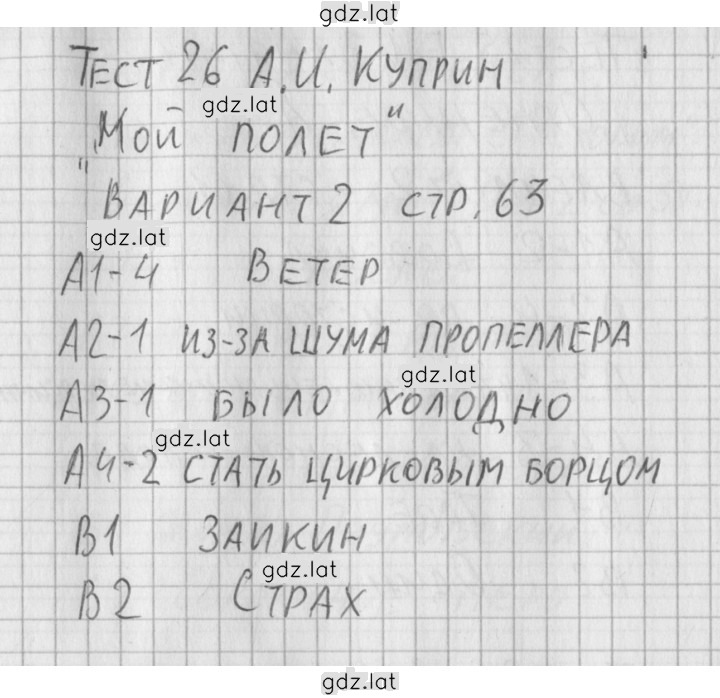 gdz.lat
Тест 26 А.И. Куприн
gdz.lat
"Мой полет"
Вариант 2 стр. 63
gdz.lat
А1-4 Ветер
А2-1 из-за шума пропеллера
gdz.lat
А3-1 было холодно
gdz.lat
А4-2 стать цирковым борцом
В1 Заикин
gdz.lat
В2 Страх
gdz.lat